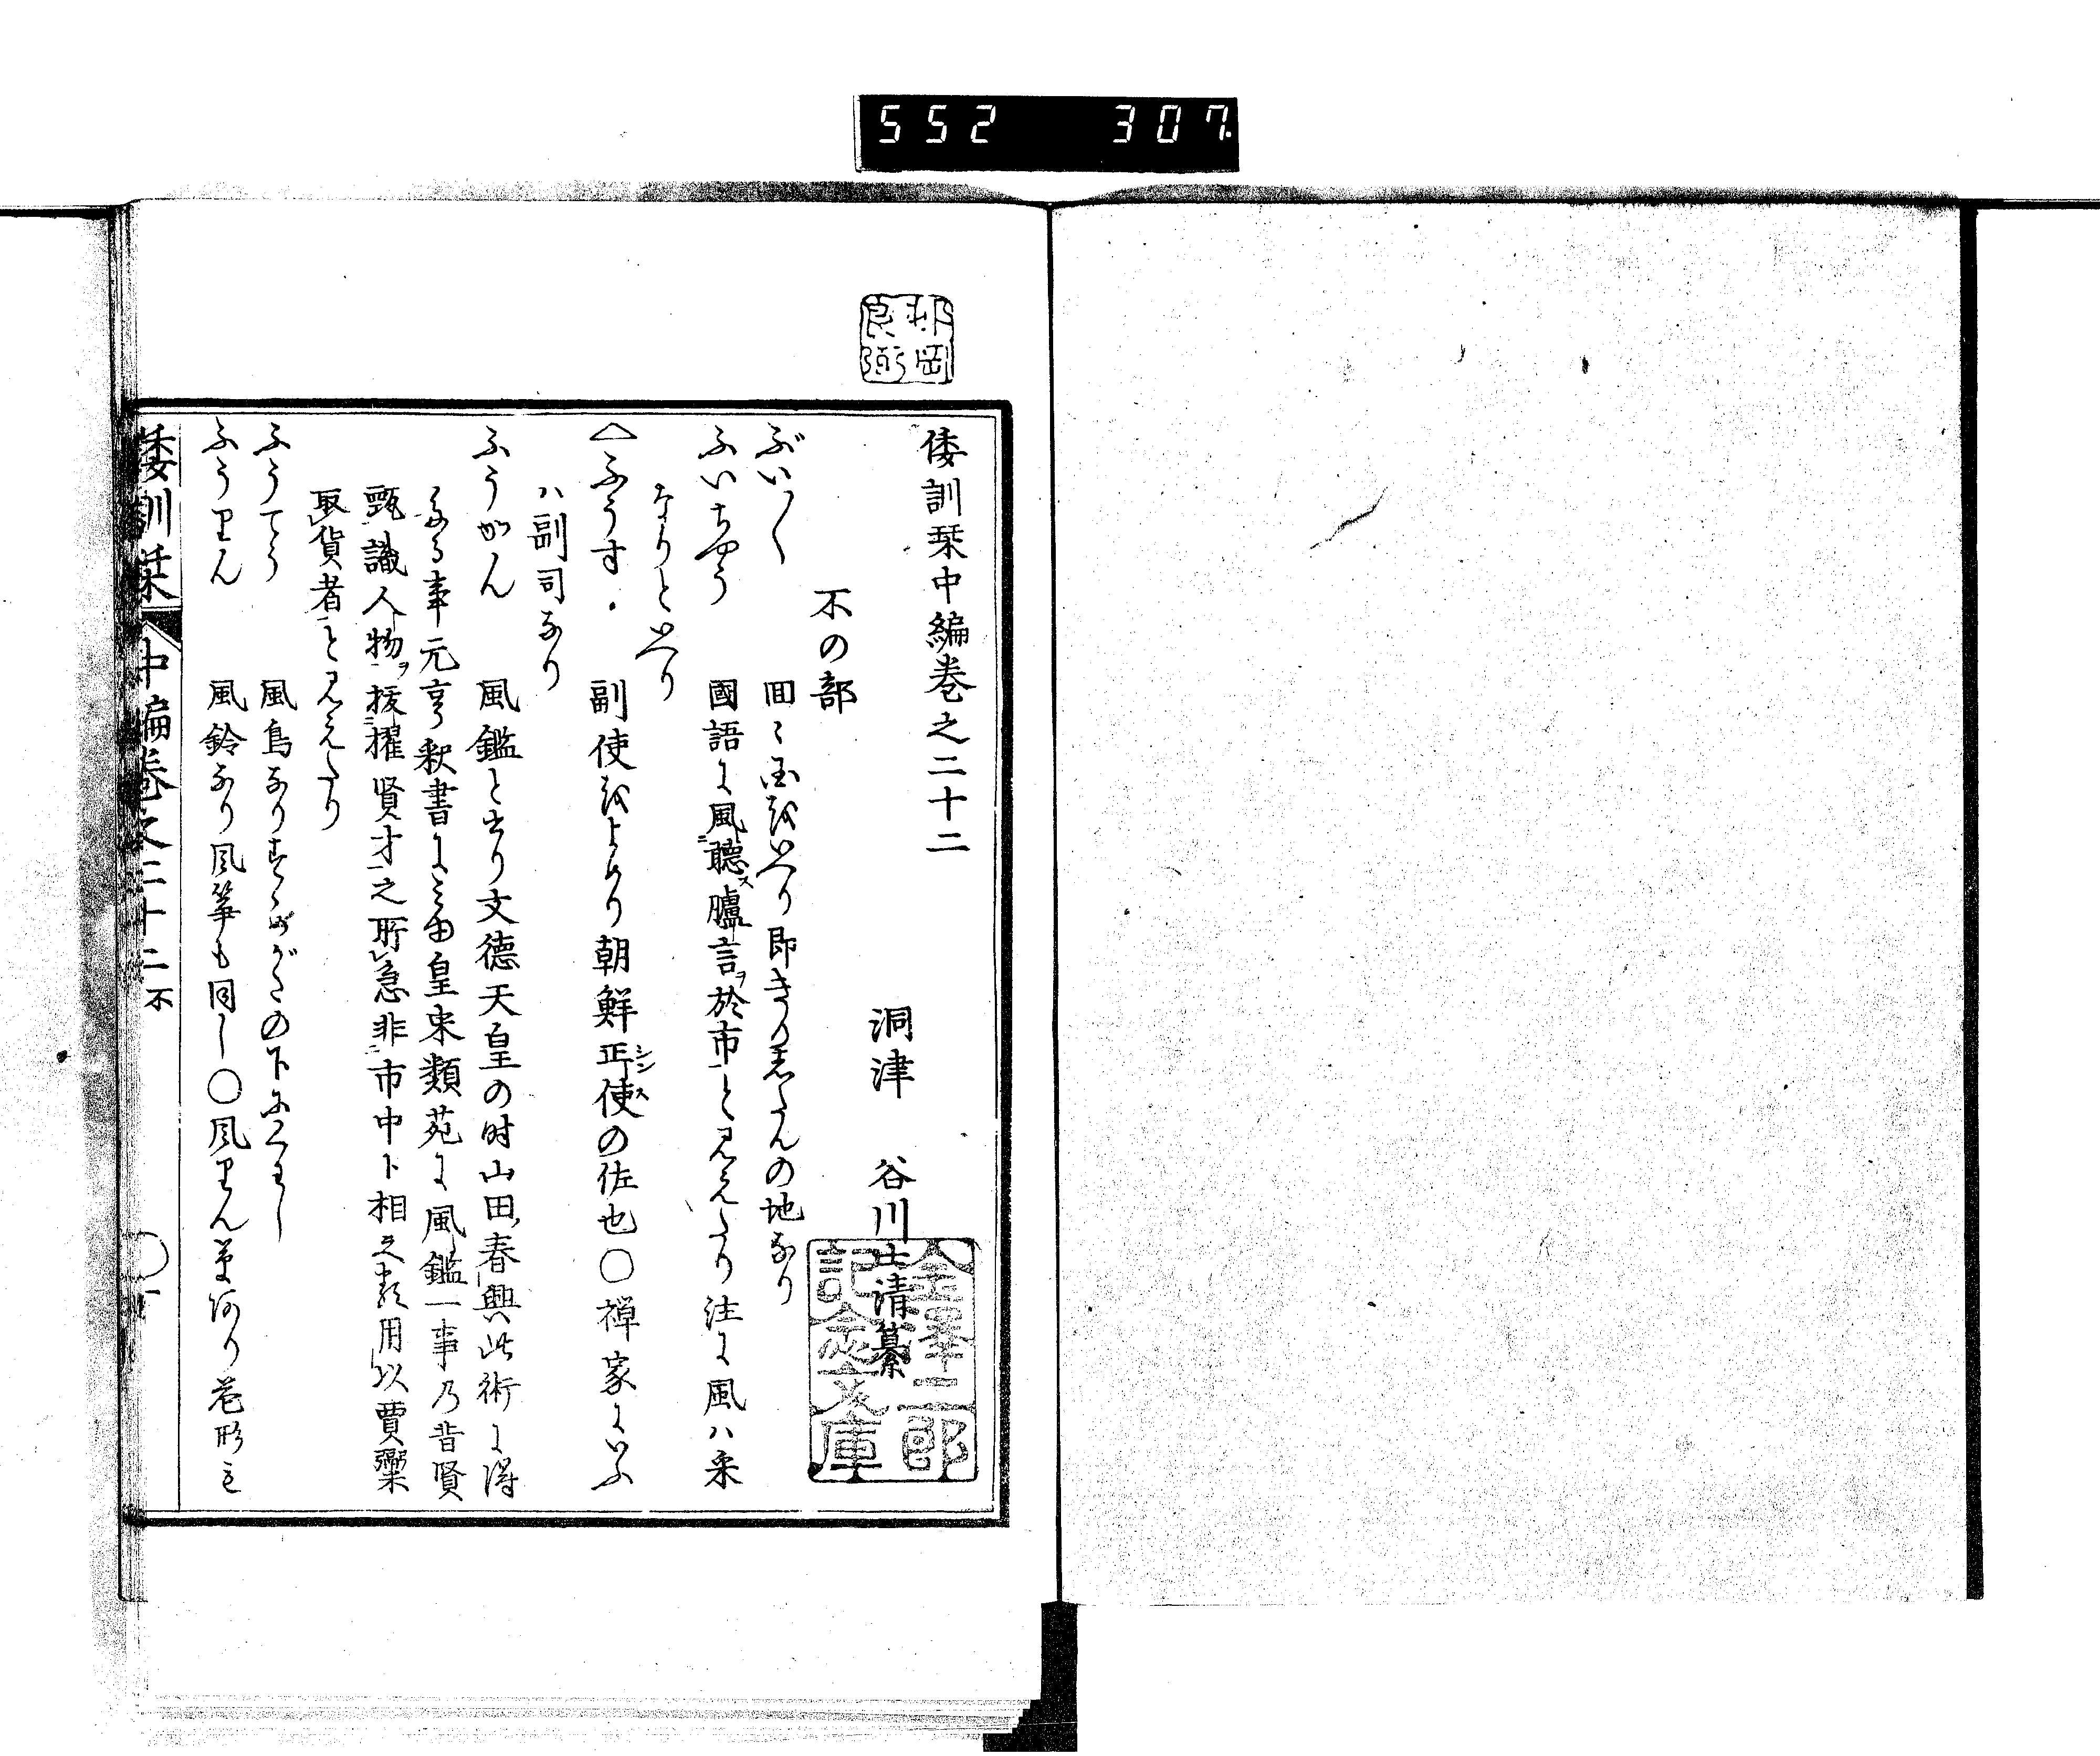 552 307
倭訓栞中編巻之二十二
洞津 谷川士清纂
不の部
ぶい〱 回〻国をいへり即きり志たんの地なり
ふいちやう 國語に風聴ス臚言ヲ於市とみえたり注に風ハ采
なりといへり
△ふうす 副使をよめり朝鮮正使シンスの佐也〇禅家にいふ
ハ副司なり
ふうかん 風鑑と書り文徳天皇の時山田春興此術に得
たる事元亨釈書にみゆ皇宋類苑に風鑑一事乃昔賢
甄識人物ヲ抜擢賢才之所急非市中卜相之類用以賈鬻
取貨者とみえたり
ふうてう 風鳥なりすゝめがたの下にくはし
ふうりん 風鈴なり風筝も同し〇風りん草あり花形も
倭訓栞 中編巻之二十二 不 〇一
那岡良弼
金澤二郎記念文庫